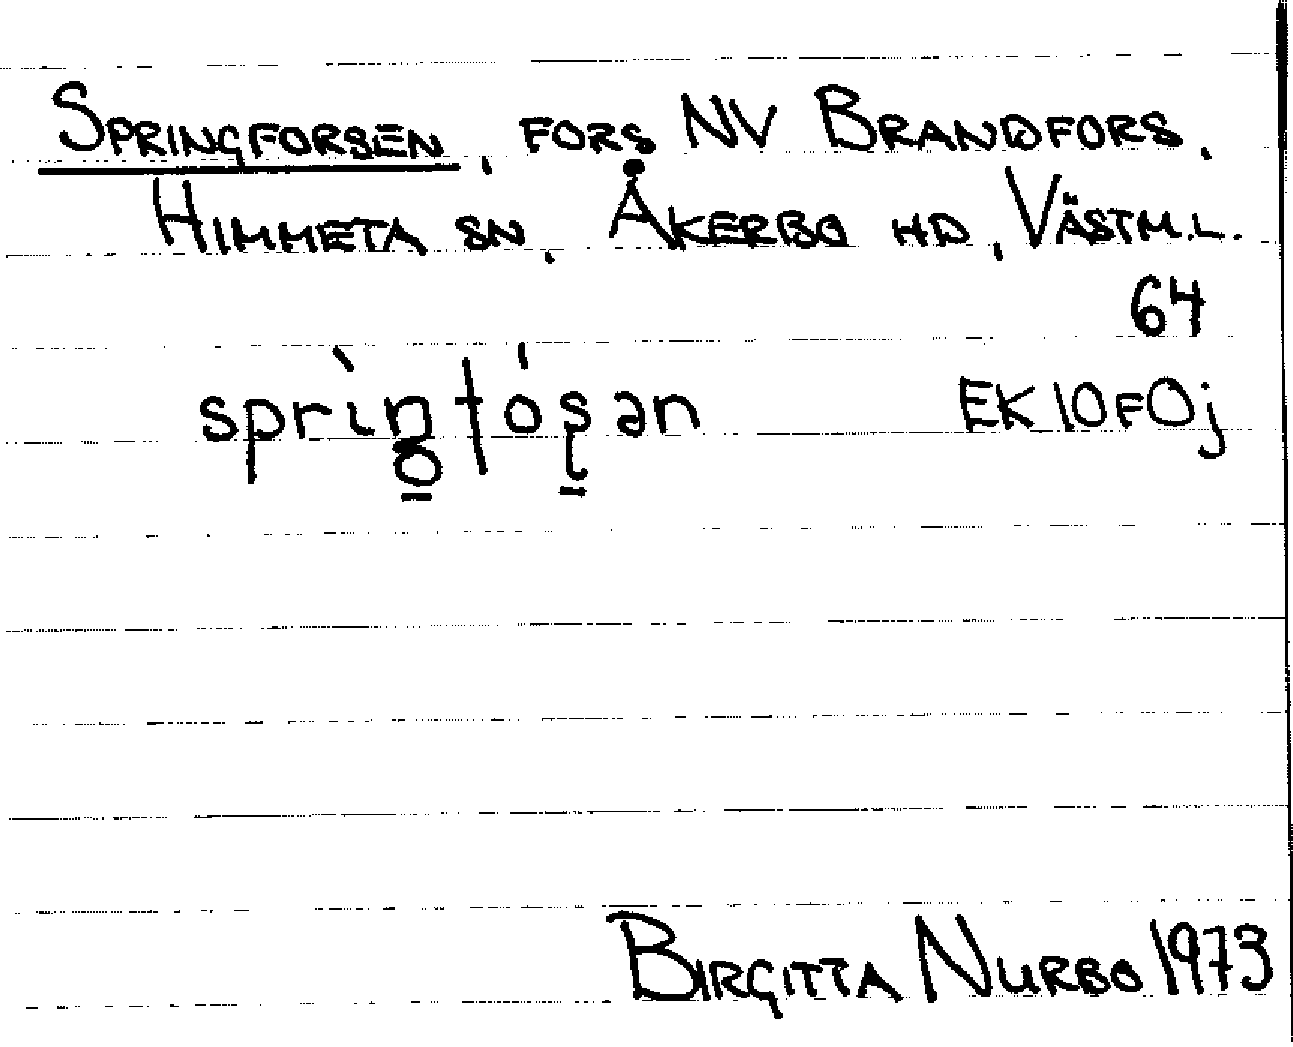 SPRINGFORSEN, FORS NV BRANDFORS,
HIMMETA SN, ÅKERBO HD, VÄSTM.L.
64
EK 10F0j
BIRGITTA NURBO 1973